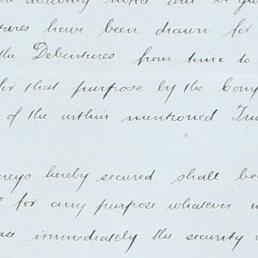 tures have been drawn for
the Debentures from time to
for that purpose by the Com
of the within mentioned Tru
neys hereby secured shall be
for any purpose whatever
ase immediately the security